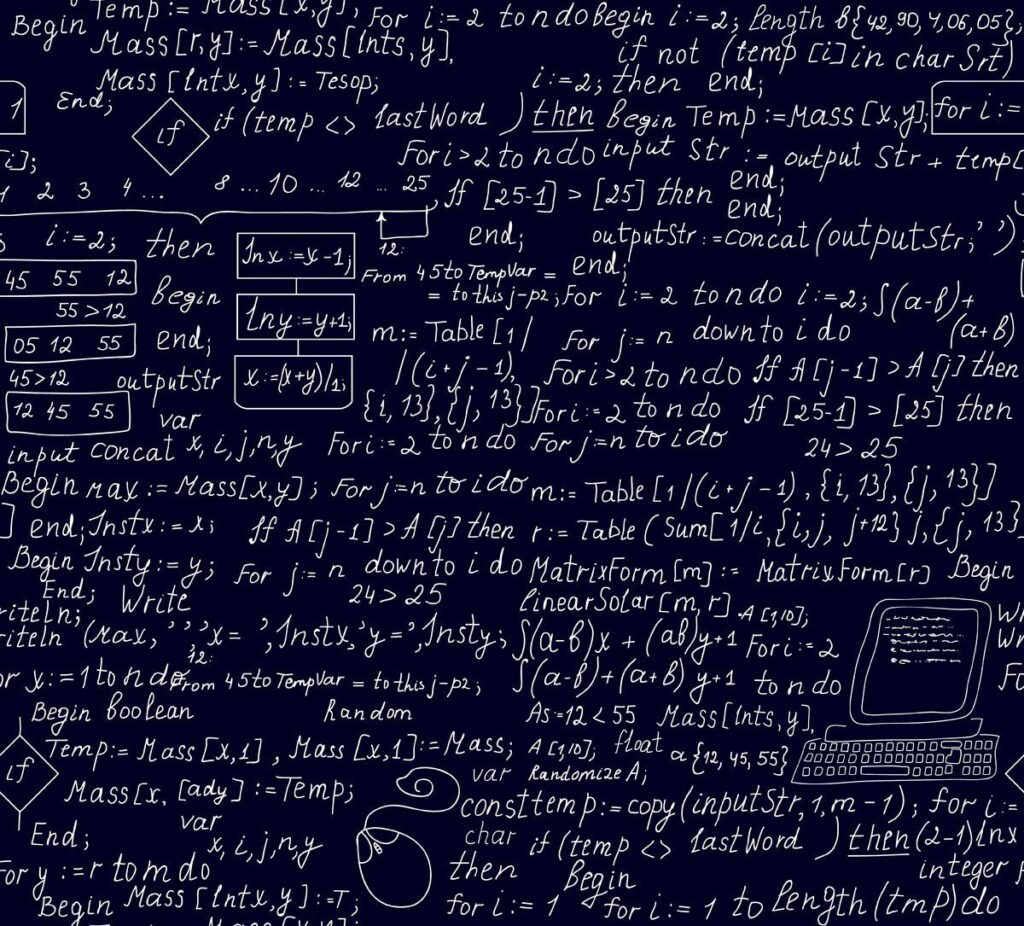 Begin Temp := Mass [x,y], For i:=2 to n do Begin i:=2; Length b{42, 90, 4, 06, 05};
Mass [r,y] := Mass [Ints, y], if not (temp [i] in char Srt)
Mass [Intx, y] := Tesop; i:=2; then end;
1 End; if if (temp <> lastWord ) then begin Temp := Mass [x,y]; for i :=
[i]; For i > 2 to n do input Str := output Str + temp[
1 2 3 4 ... 8 ... 10 ... 12 ... 25, If [25-1] > [25] then end;
end;
i:=2; then 12: end; outputStr := concat (outputStr, ' ')
Inx := x -1; From 45 to TempVar = end;
45 55 12 begin = to this j-p2; For i := 2 to n do i:=2; ∫(a-b)+
55 > 12 Iny := y+1; m:= Table [1/ For j:= n down to i do (a+b)
05 12 55 end;
45 > 12 outputStr x :=(x+y)/1; /(i+j-1), For i > 2 to n do If A[j-1] > A[j] then
12 45 55 var {i, 13}, {j, 13}] For i := 2 to n do If [25-1] > [25] then
input concat x, i, j, n, y For i:=2 to n do For j=n to i do 24 > 25
Begin max := Mass[x,y]; For j=n to i do m:= Table [1/(i+j-1), {i, 13}, {j, 13}]
] end; Instx := x; If A [j-1] > A [j] then r := Table (Sum[1/i, {i, j, j+12} j, {j, 13}
Begin Insty := y; For j:= n down to i do MatrixForm [m] := Matrix Form [r] Begin
End; Write 24 > 25 linearSolar [m, r] A [1,10];
riteln;
riteln (max, ' ', 'x= ', Instx, 'y =', Insty; ∫(a-b)x + (ab)y+1 For i := 2
12:
or x:=1 to n do From 45 to TempVar = to this j-p2; ∫(a-b)+(a+b) y+1 to n do
Begin boolean Random As=12 < 55 Mass [Ints, y],
if Temp := Mass [x,1], Mass [x,1] := Mass; A [1,10]; float a {12, 45, 55}
Mass [x, [ady] := Temp; var Randomize A;
End; var const temp := copy (inputStr, 1, m - 1); for i :=
x, i, j, n, y char if (temp <> lastWord ) then (2-1) Inx
For y := r to m do then Begin integer
Begin Mass [Intx, y] := T; for i := 1 for i := 1 to Length (tmp) do